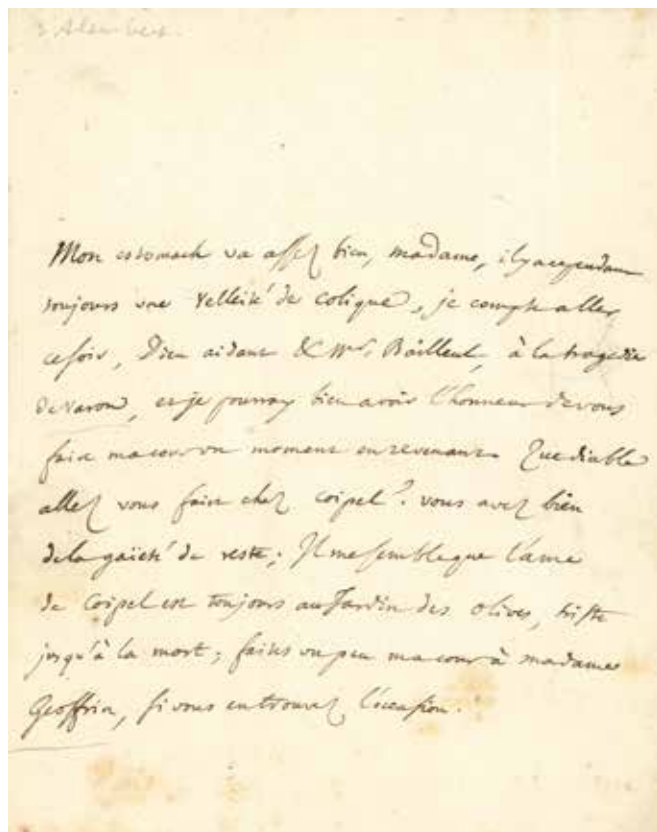 d'Alembert.
Mon estomach va assez bien, madame, il y a cependant
toujours une velleité de colique, je compte aller
ce soir, Dieu aidant & Mr. Bailleul, à la tragedie
de varon, et je pourray bien avoir l'honneur de vous
faire ma cour un moment en revenant. Que diable
allez vous faire chez coipel? vous avez bien
de la gaieté de reste; Il me semble que l'ame
de Coipel est toujours au Jardin des olives, triste
jusqu'à la mort; faites un peu ma cour à madame
Geoffrin, si vous en trouvez l'occasion.